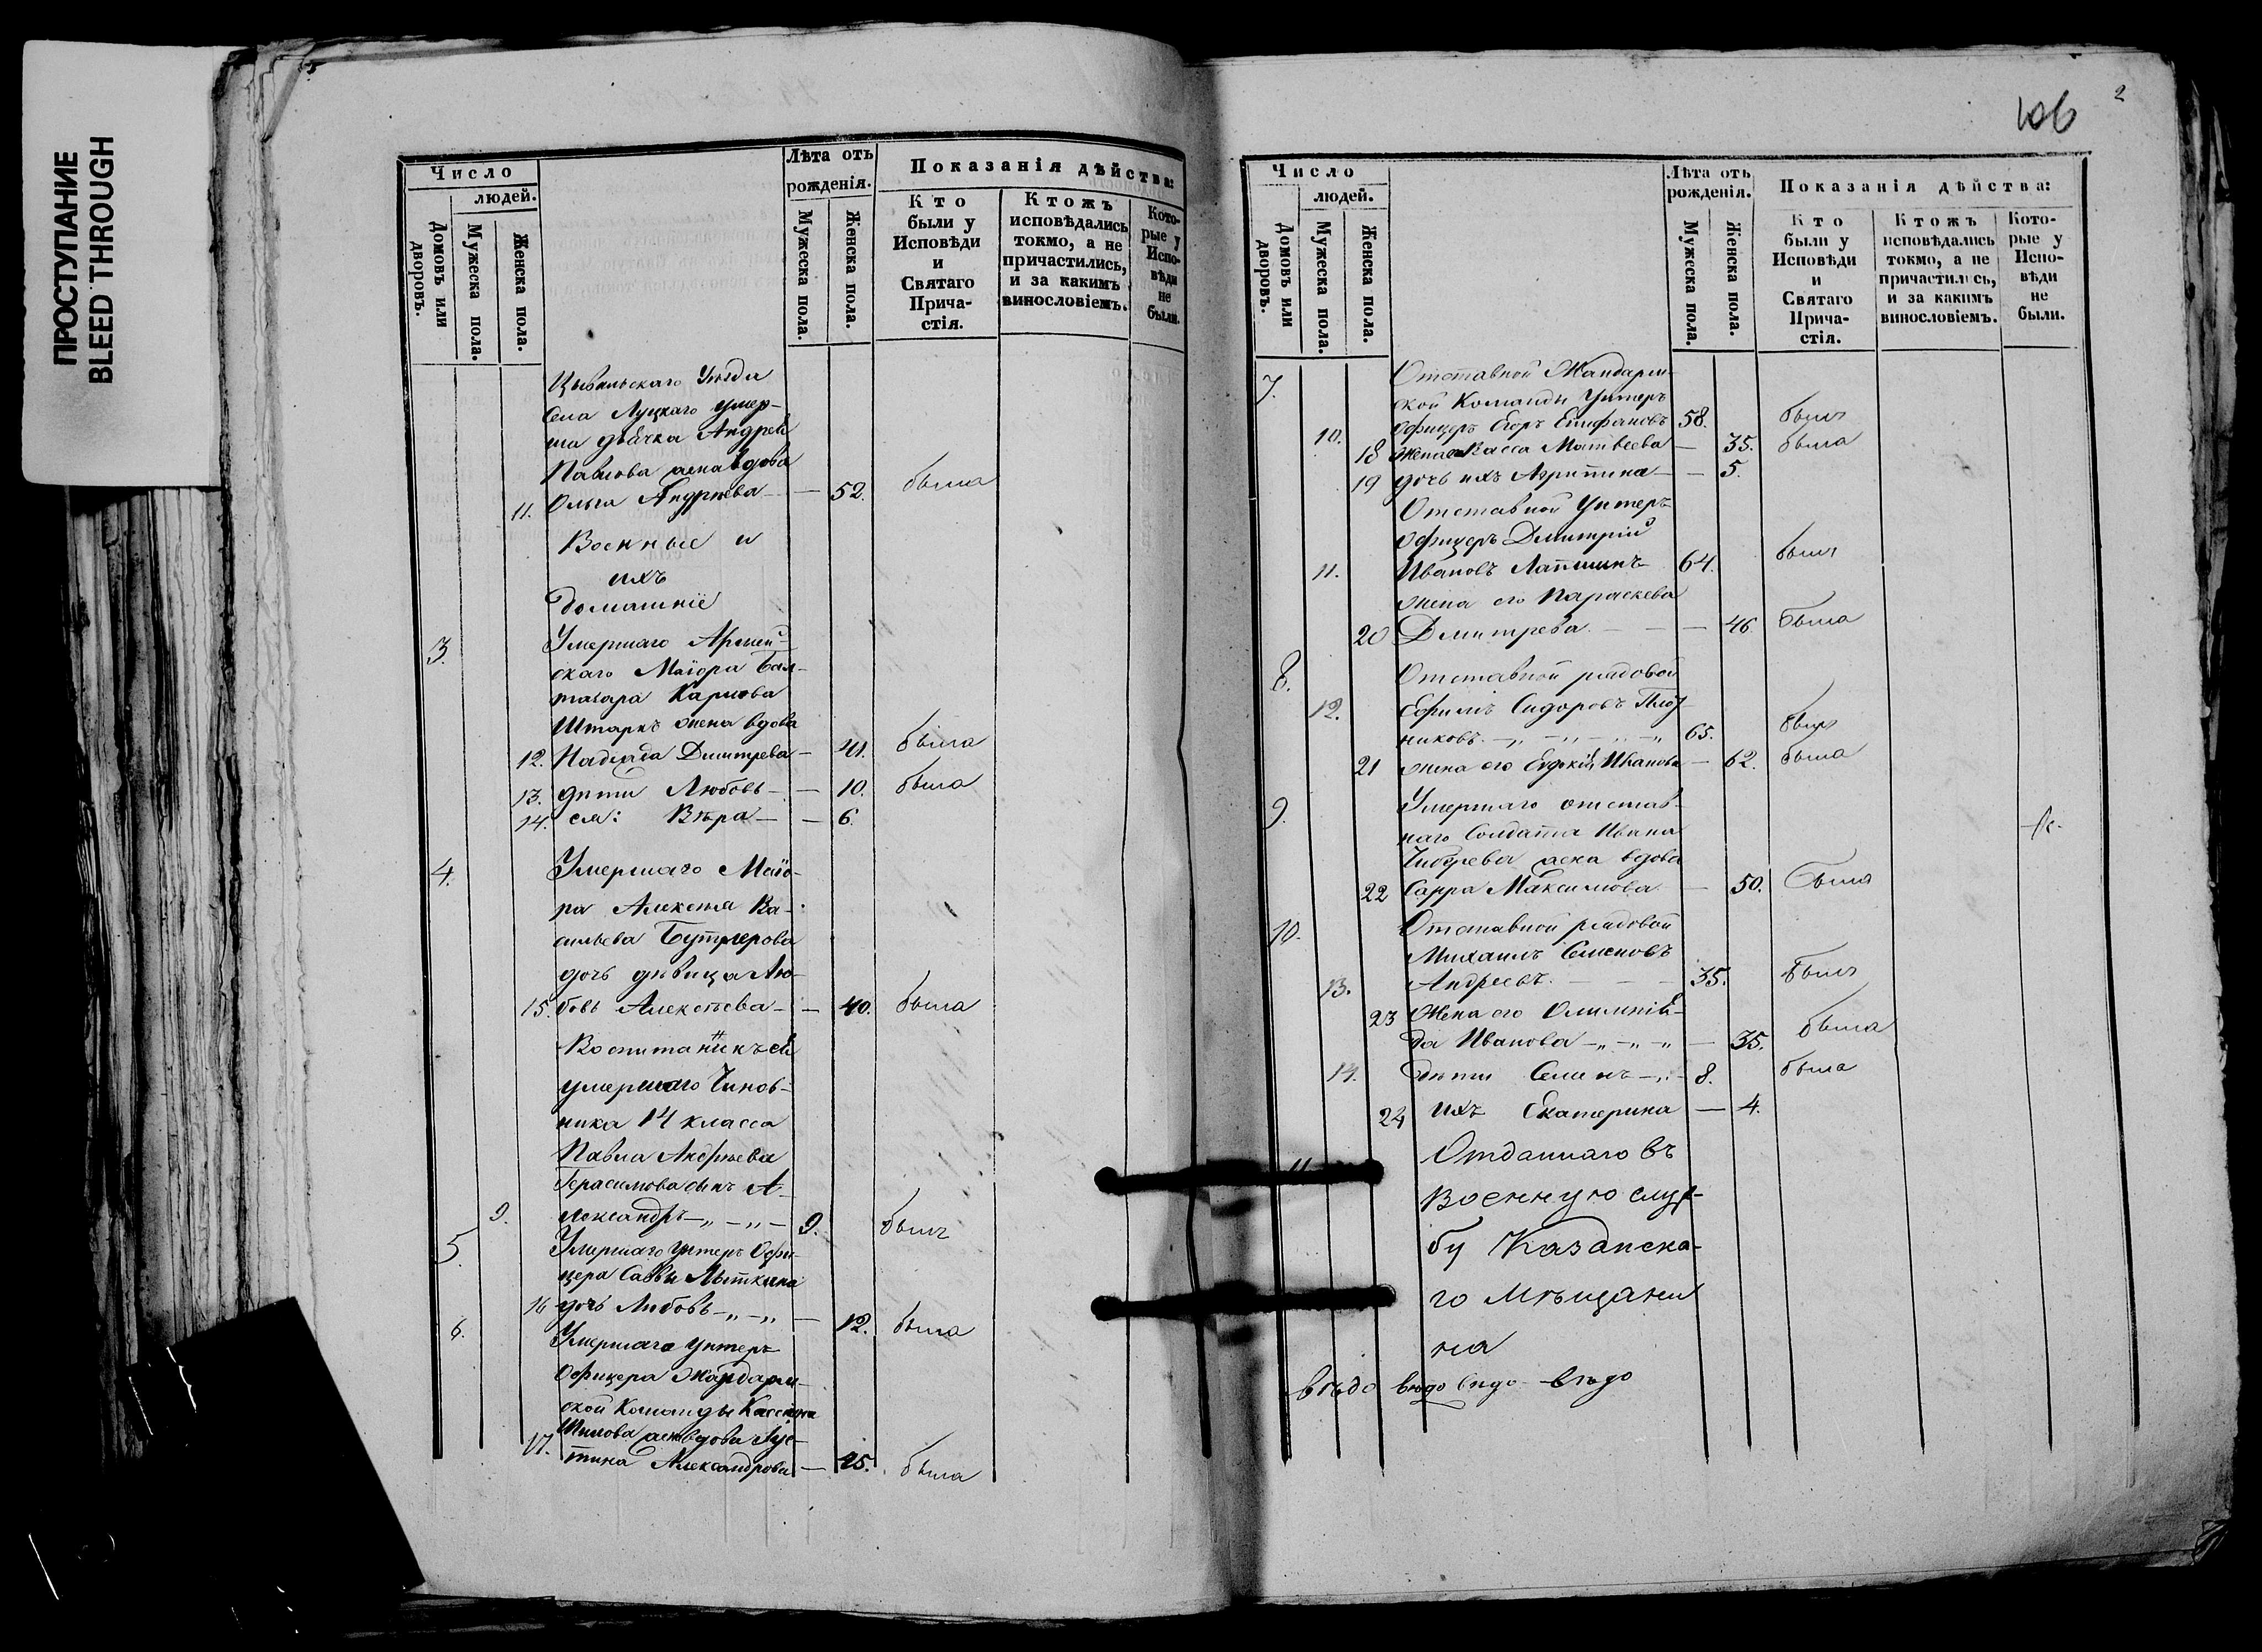 ПРОСТУПАНИЕ
BLEED THROUGH
Число
людей.
Домовъ или дворовъ.
Мужеска пола.
Женска пола.
Лѣта отъ рожденія.
Мужеска пола.
Женска пола.
Показанія дѣйства:
Кто были у Исповѣди и Святаго Прича-стія.
Ктожъ исповѣдались токмо, а не причастились, и за какимъ винословіемъ.
Кото-рые у Испо-вѣди не были.
Цывильскаго Уѣзда
Села Луцкаго умер-
ша дьячка Андрей
Павлова жена вдова
11. Ольга Андреева — 52. была
Военные и
ихъ
домашніе
3. Умершаго Армей-
скаго Маіора Бал-
тазара Карлова
жена вдова
12. Надежда Дмитрева — 41. была
13. дѣти Любовь — 10. была
14. ея: Вѣра — 6.
4. Умершаго Маіо-
ра Алексѣя Ва-
сильева Бутлерова
дочь дѣвица Лю-
15. бовь Алексѣева — 40. была
Воспитанникъ ей
умершаго Чинов-
ника 14 класса
Павла Андреева
Герасимова сынъ А-
9. лександръ — 9. былъ
5. Умершаго Унтеръ Офи-
цера Саввы Лыткина
16 дочь Любовь — 12. была
6. Умершаго Унтеръ
Офицера Жандарм-
ской Команды
Шилова жена вдова Аус-
17. тина Александрова — 25. была
106
2
Число
людей.
Домовъ или дворовъ.
Мужеска пола.
Женска пола.
Лѣта отъ рожденія.
Мужеска пола.
Женска пола.
Показанія дѣйства:
Кто были у Исповѣди и Святаго Прича-стія.
Ктожъ исповѣдались токмо, а не причастились, и за какимъ винословіемъ.
Кото-рые у Испо-вѣди не были.
7. Отставной Жандарм-
ской Команды Унтеръ
10. Офицеръ Егоръ Епифановъ 58. былъ
18 Жена Васса Матвеева — 35. была
19 дочь ихъ Агрипина — 5.
Отставной Унтеръ
офицеръ Димитрій
11. Ивановъ Лапшинъ 64. былъ
жена его Параскева
20 Дмитрева — 46 была
8. Отставной рядовой
12. Ефимъ Сидоровъ
никовъ — 65. былъ
21 жена его Иванова — 62. была
9. Умершаго отстав-
наго Солдата Ивана
жена вдова
22 Сарра Максимова — 50. была
10. Отставной рядовой
Михаилъ Семеновъ
13. Андреевъ — 35. былъ
23 Жена его Олимпіа-
да Иванова — 35. была
14. Дѣти Семенъ — 8. была
24 ихъ Екатерина — 4.
11 Отданнаго въ
военную служ-
бу Казанска-
го Мѣщани
на
вѣдо вѣдо вѣдо вѣдо